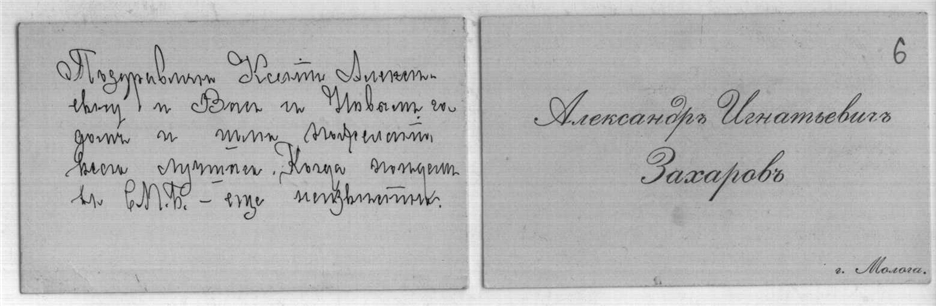 Поздравляю Ксенію Алексѣ-
евну и Васъ съ Новымъ го-
домъ и шлю пожеланія
всего лучшаго. Когда поѣдемъ
въ С.П.Б. – еще неизвѣстно.
6
Александръ Игнатьевичъ
Захаровъ
г. Молога.